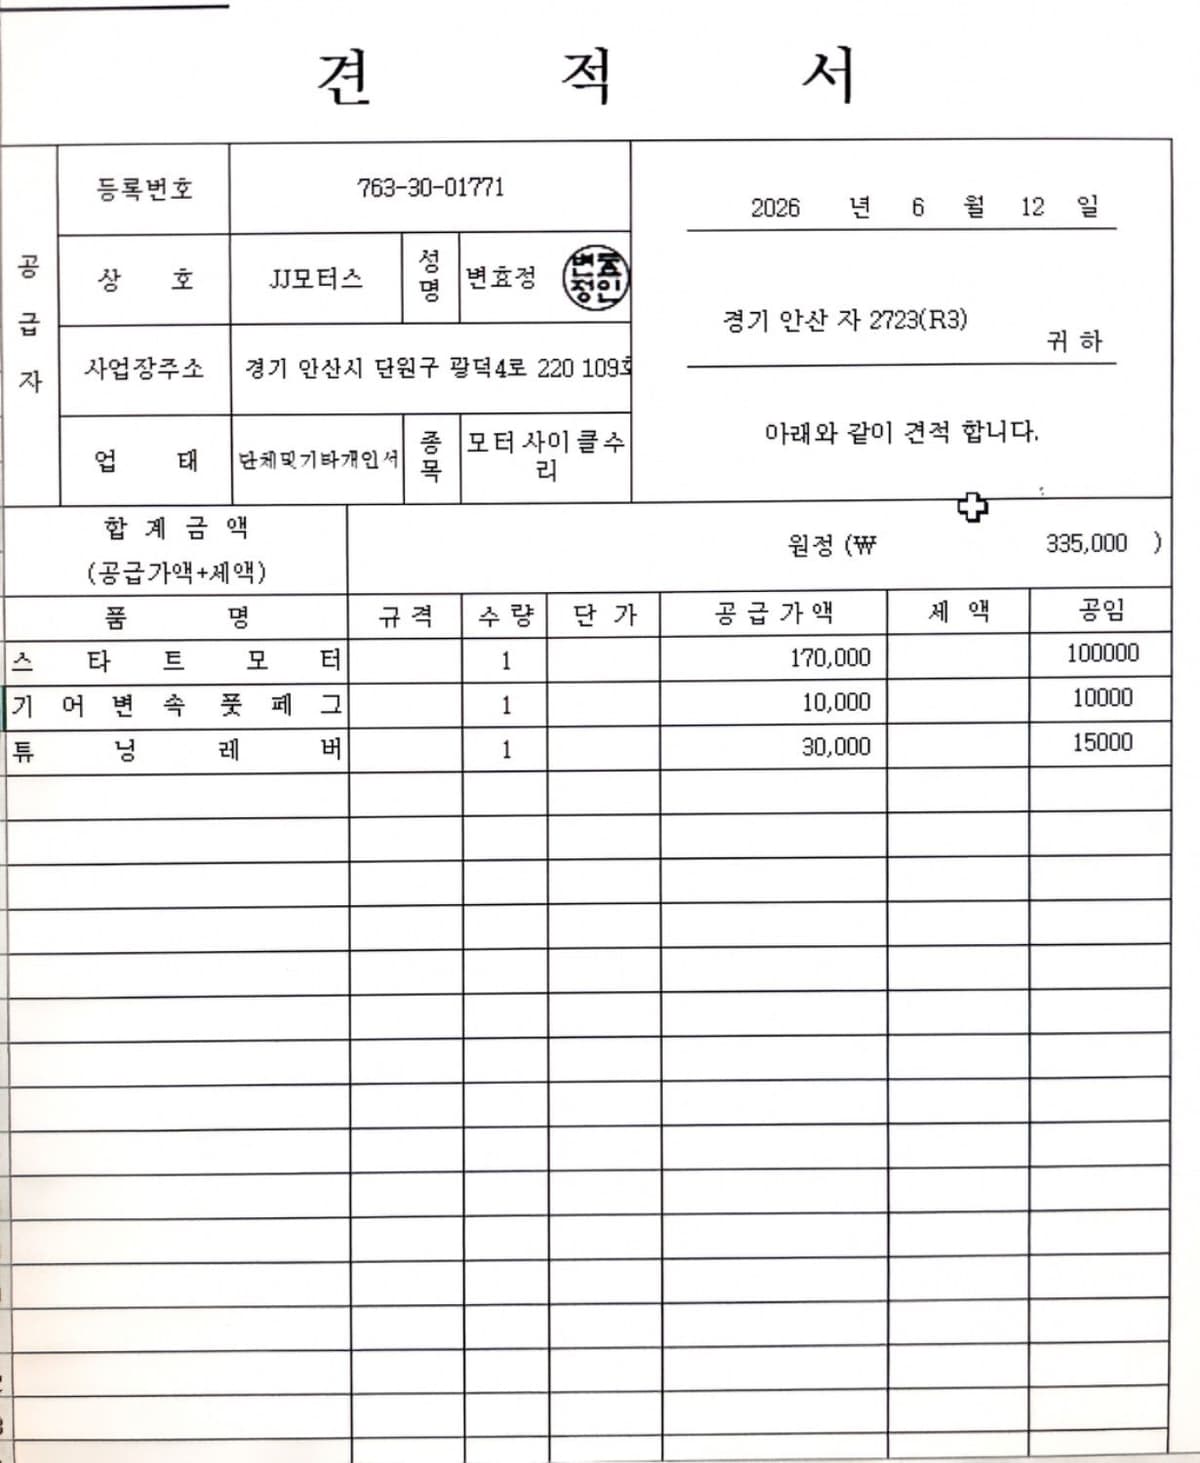 견 적 서
공급자
등록번호 763-30-01771
상 호 JJ모터스 성명 변효정 변효정인
사업장주소 경기 안산시 단원구 광덕4로 220 109호
업 태 단체및기타개인서 종목 모터사이클수리
2026 년 6 월 12 일
경기 안산 자 2723(R3)
귀 하
아래와 같이 견적 합니다.
합 계 금 액
(공급가액+세액)
원정 (₩ 335,000 )
품 명 규 격 수 량 단 가 공 급 가 액 세 액 공임
스 타 트 모 터 1 170,000 100000
기 어 변 속 풋 페 그 1 10,000 10000
튜 닝 레 버 1 30,000 15000